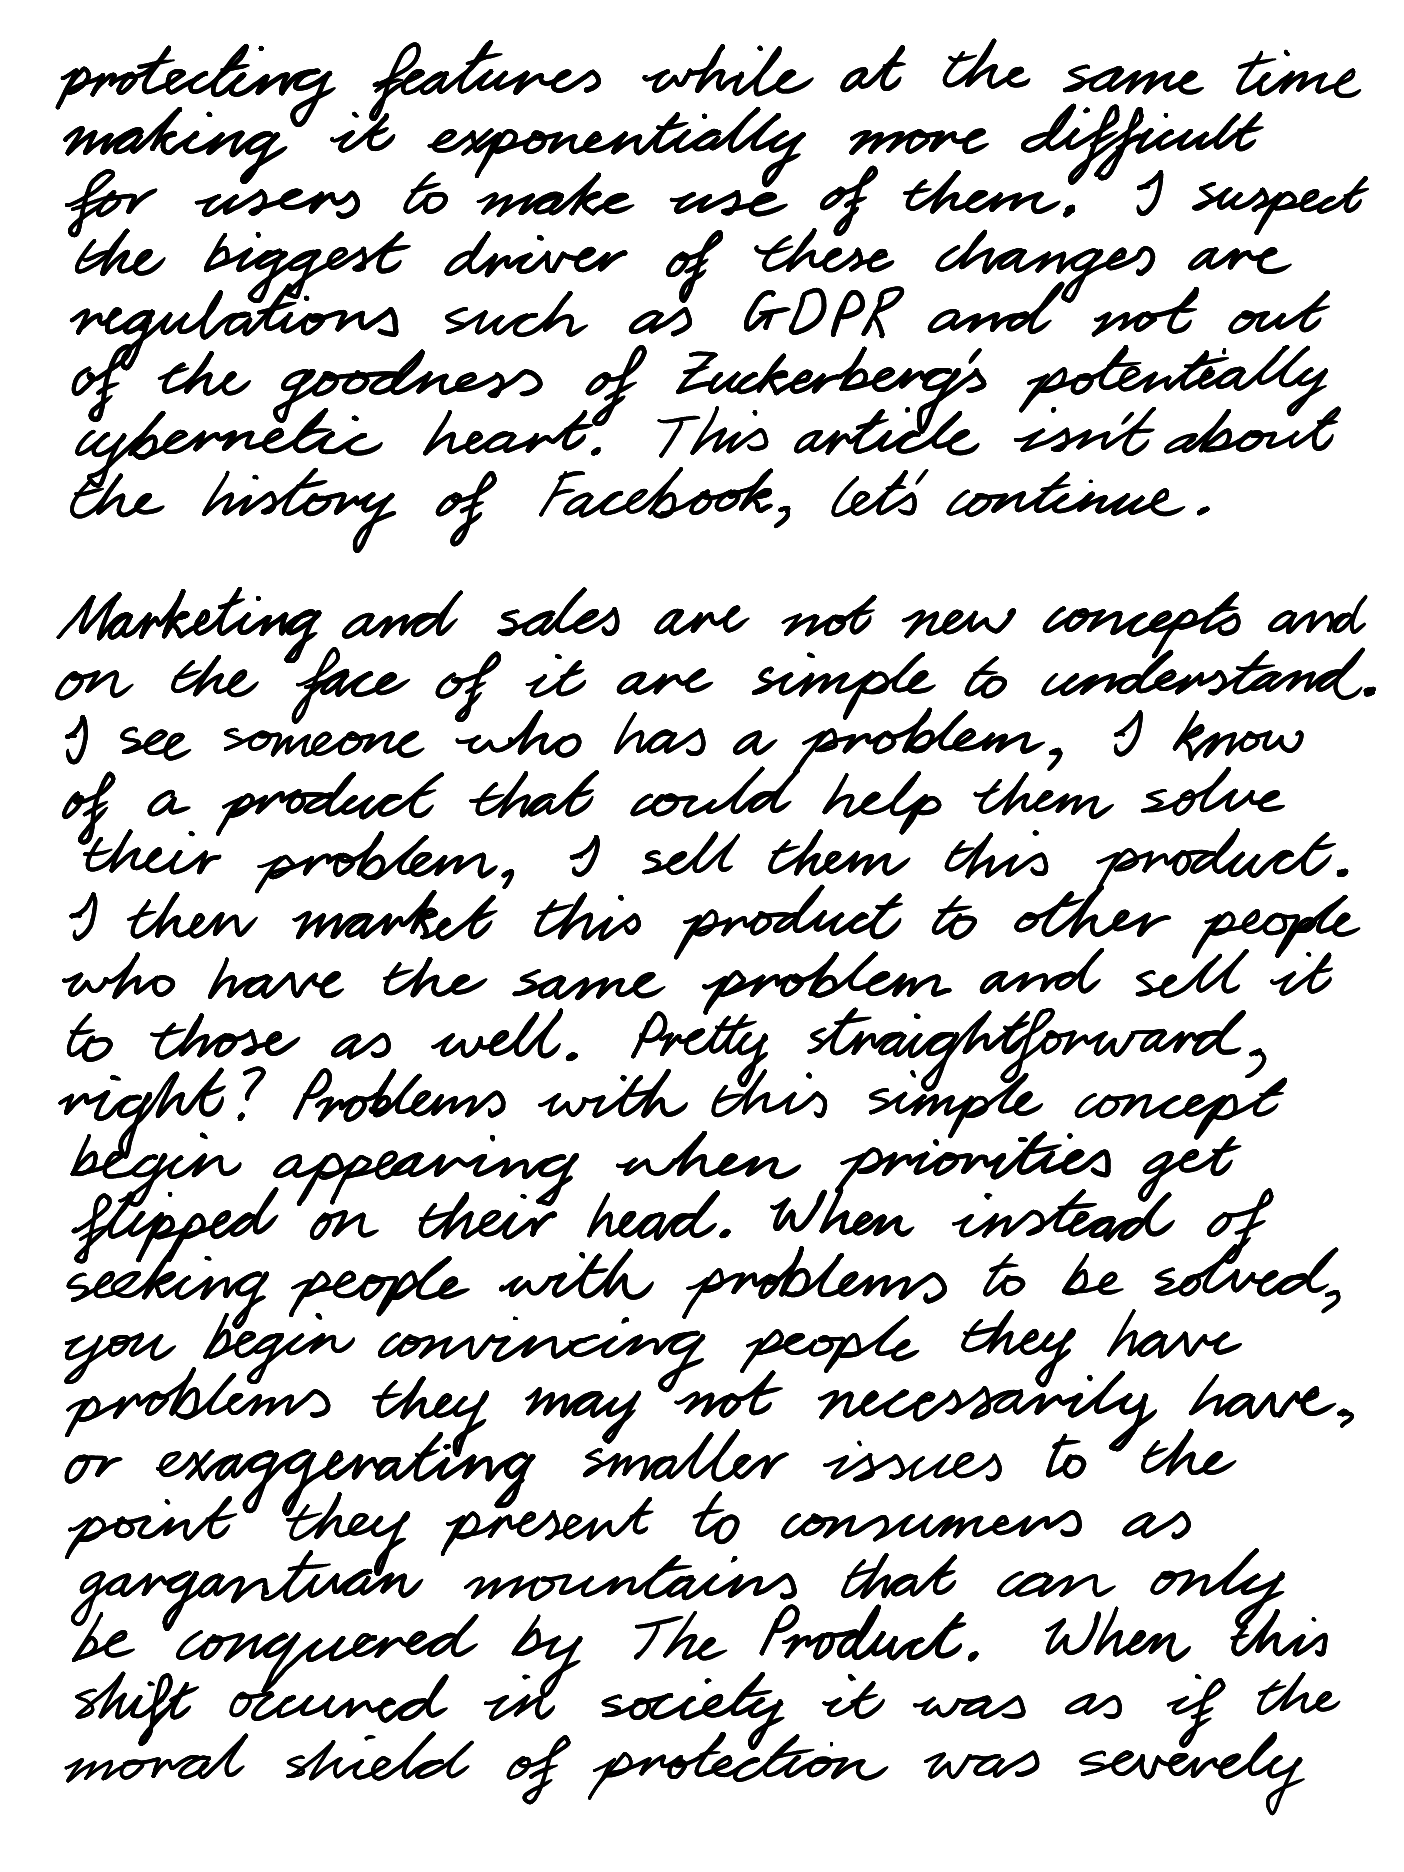 protecting features while at the same time
making it exponentially more difficult
for users to make use of them. I suspect
the biggest driver of these changes are
regulations such as GDPR and not out
of the goodness of Zuckerberg's potentially
cybernetic heart. This article isn't about
the history of Facebook, let's continue.

Marketing and sales are not new concepts and
on the face of it are simple to understand.
I see someone who has a problem, I know
of a product that could help them solve
their problem, I sell them this product.
I then market this product to other people
who have the same problem and sell it
to those as well. Pretty straightforward,
right? Problems with this simple concept
begin appearing when priorities get
flipped on their head. When instead of
seeking people with problems to be solved,
you begin convincing people they have
problems they may not necessarily have,
or exaggerating smaller issues to the
point they present to consumers as
gargantuan mountains that can only
be conquered by The Product. When this
shift occured in society it was as if the
moral shield of protection was severely